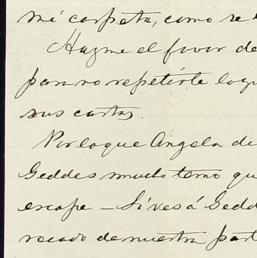 mi carpeta, como se
Hazme el favor de
para no repetirte lo q
sus cartas.
Por lo que Angela de
Geddes mucho temo qu
escape - Si ves á Gedd
recado de nuestra part